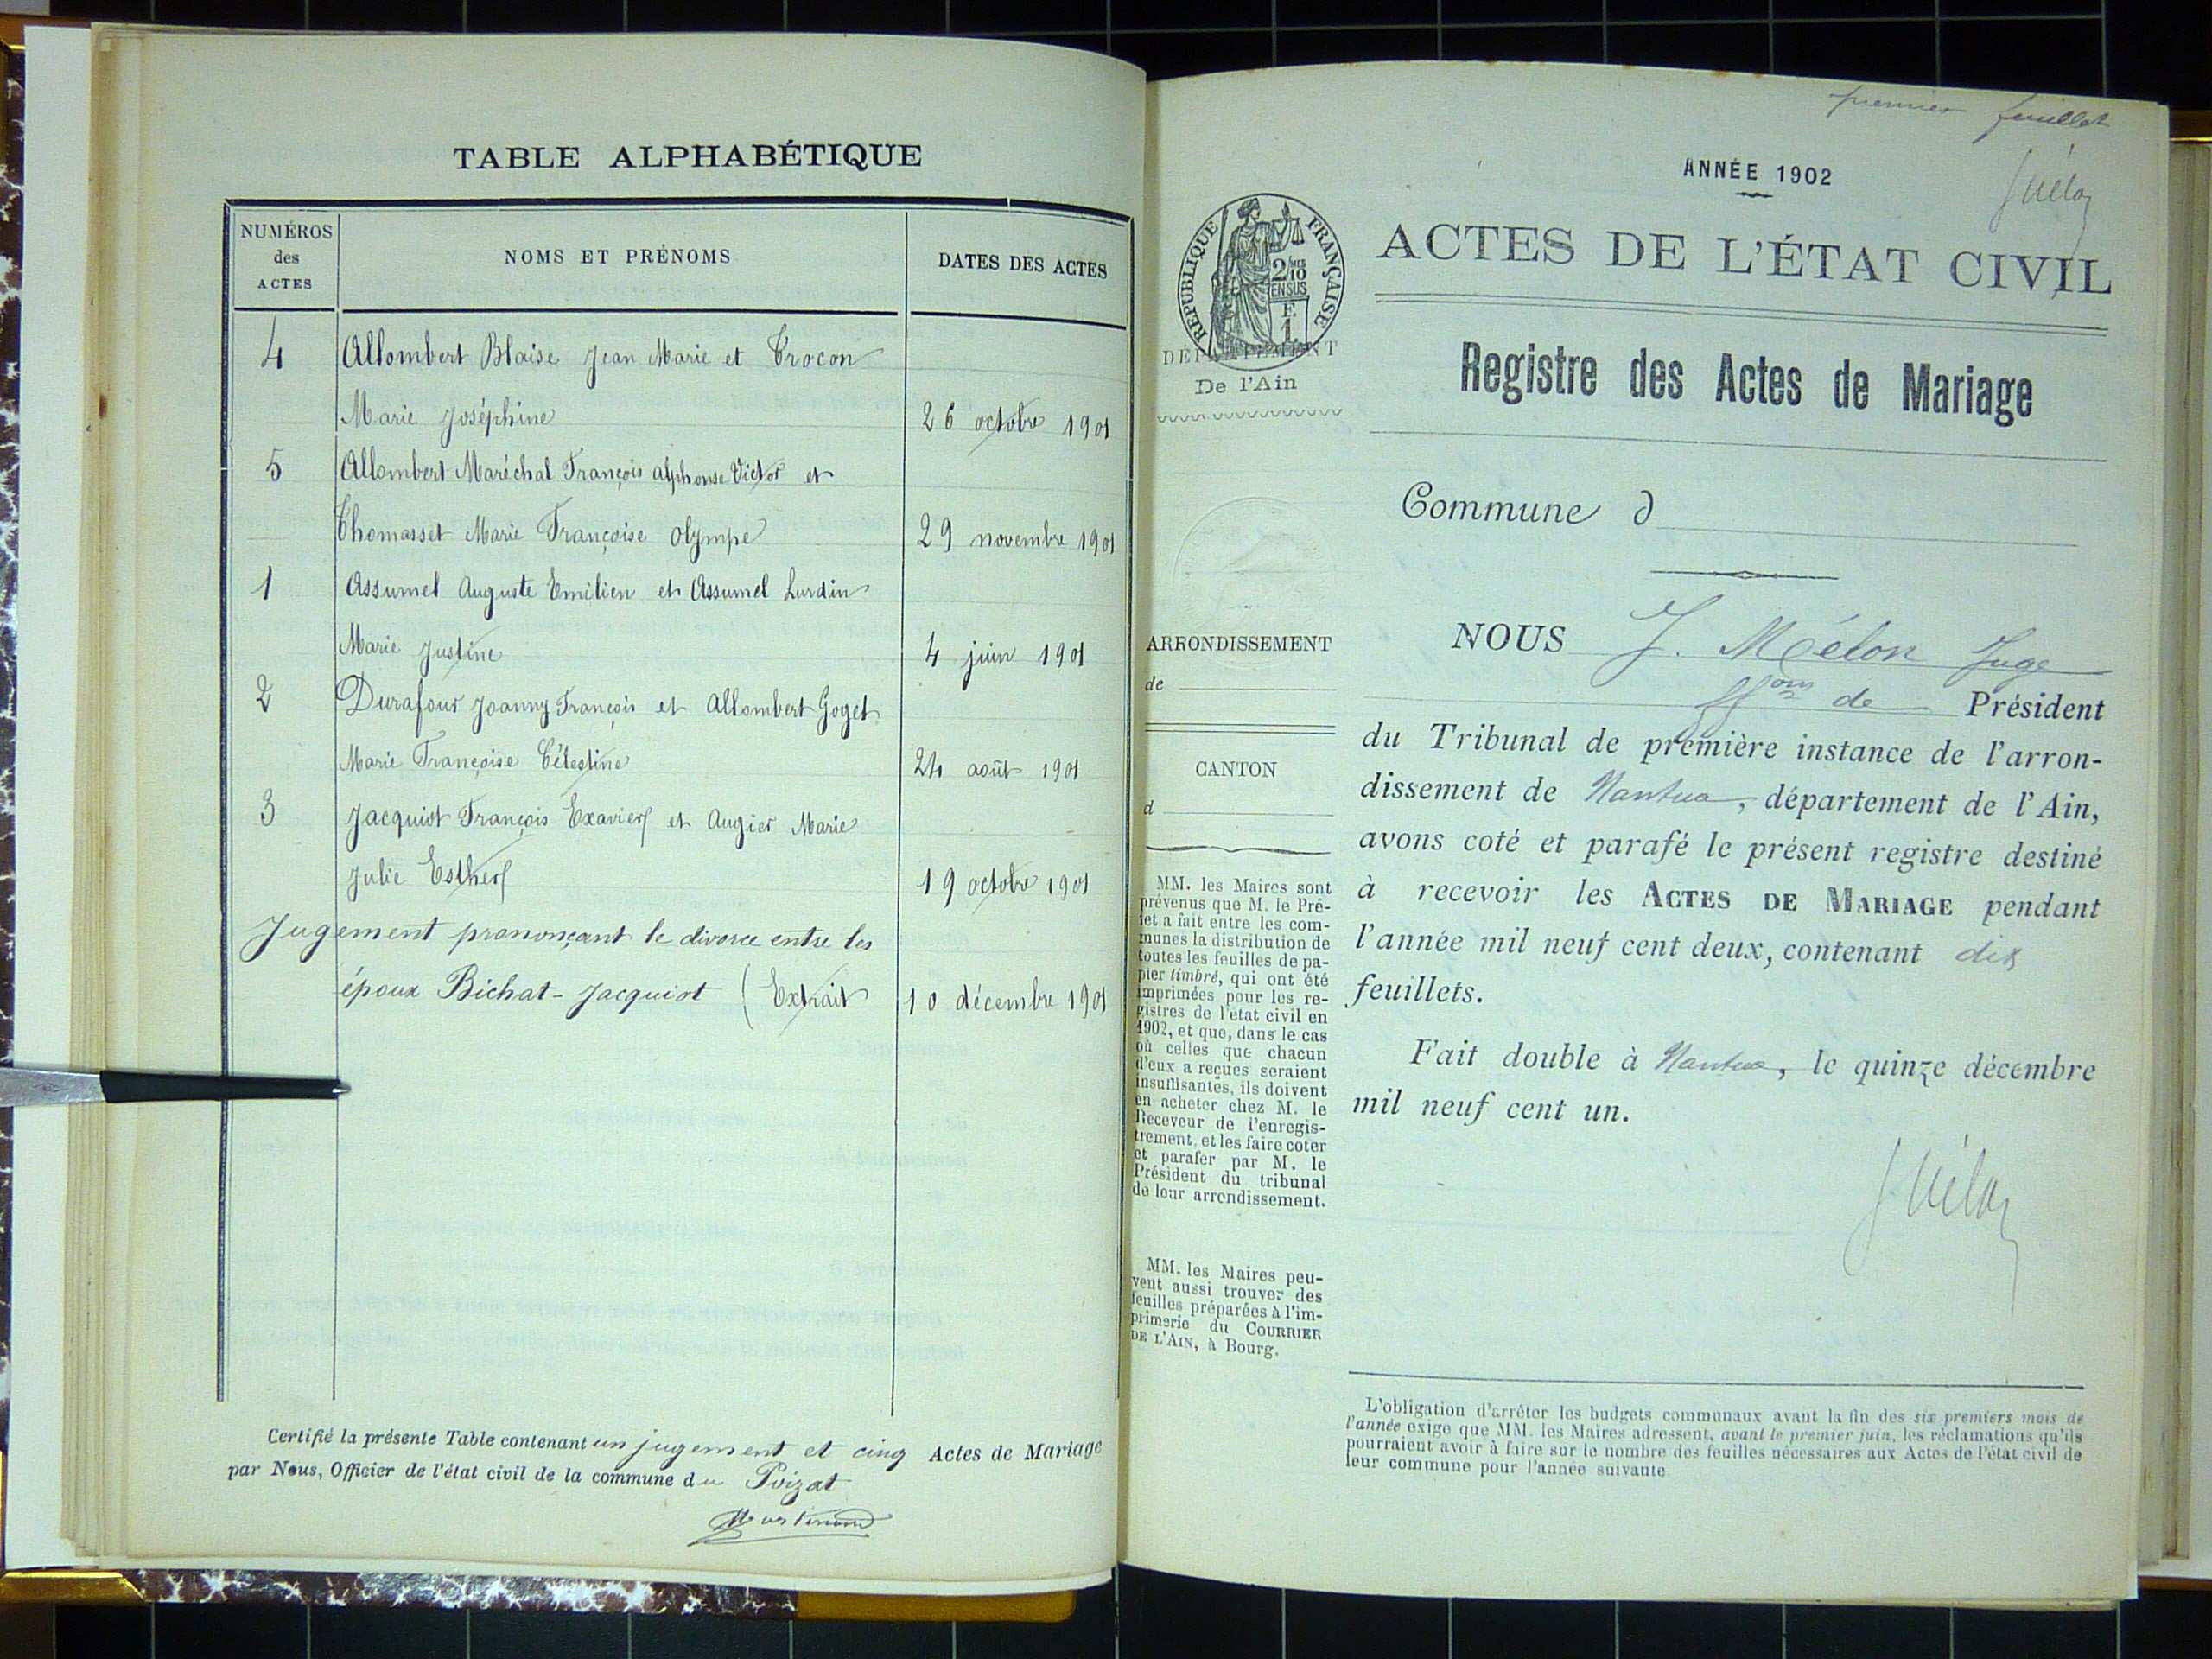 TABLE ALPHABÉTIQUE
NUMÉROS
des
ACTES
NOMS ET PRÉNOMS
DATES DES ACTES
4 Allombert Blaise Jean Marie et Crocon
Marie Joséphine 26 octobre 1901
5 Allombert Maréchal François Alphonse Victor et
Thomasset Marie Françoise Olympe 29 novembre 1901
1 Assumel Auguste Emilien et Assumel Lurdin
Marie Justine 4 juin 1901
2 Durafour Joanny François et Allombert Goget
Marie Françoise Célestine 24 août 1901
3 Jacquiot François Exavier et Augier Marie
Julie Esther 19 octobre 1901
Jugement prononçant le divorce entre les
époux Bichat-Jacquiot (Extrait 10 décembre 1901
Certifié la présente Table contenant un jugement et cinq Actes de Mariage
par Nous, Officier de l'état civil de la commune du Poizat
premier feuillet
ANNÉE 1902
RÉPUBLIQUE FRANÇAISE
2/10
EN SUS
F.
1.
DÉPARTEMENT
De l'Ain
ACTES DE L'ÉTAT CIVIL
Registre des Actes de Mariage
Commune d
ARRONDISSEMENT
de
CANTON
d
MM. les Maires sont
prévenus que M. le Pré-
fet a fait entre les com-
munes la distribution de
toutes les feuilles de pa-
pier timbré, qui ont été
imprimées pour les re-
gistres de l'état civil en
1902, et que, dans le cas
où celles que chacun
d'eux a reçues seraient
insuffisantes, ils doivent
en acheter chez M. le
Receveur de l'enregis-
trement, et les faire coter
et parafer par M. le
Président du tribunal
de leur arrondissement.
MM. les Maires peu-
vent aussi trouver des
feuilles préparées à l'im-
primerie du COURRIER
DE L'AIN, à Bourg.
NOUS J. Mélon Juge
ffons de Président
du Tribunal de première instance de l'arron-
dissement de Nantua, département de l'Ain,
avons coté et parafé le présent registre destiné
à recevoir les ACTES DE MARIAGE pendant
l'année mil neuf cent deux, contenant dix
feuillets.
Fait double à Nantua, le quinze décembre
mil neuf cent un.
L'obligation d'arrêter les budgets communaux avant la fin des six premiers mois de
l'année exige que MM. les Maires adressent, avant le premier juin, les réclamations qu'ils
pourraient avoir à faire sur le nombre des feuilles nécessaires aux Actes de l'état civil de
leur commune pour l'année suivante